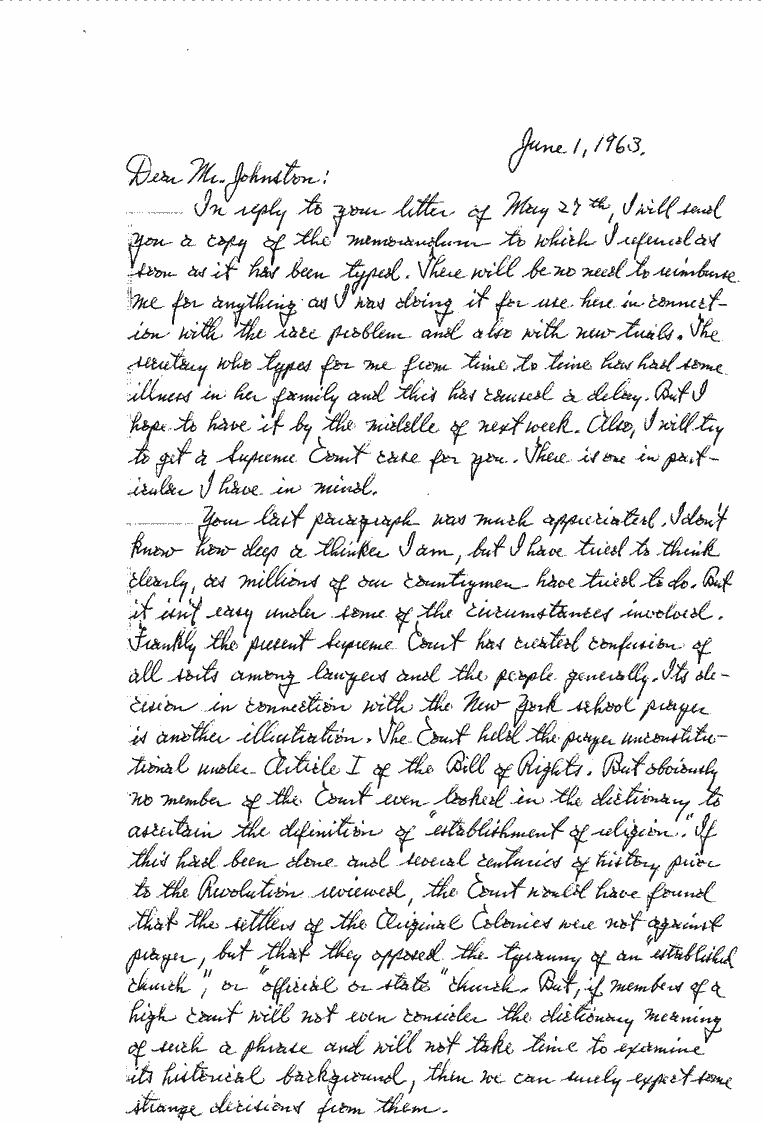 June 1, 1963.
Dear Mr. Johnston:
In reply to your letter of May 27th, I will send
you a copy of the memorandum to which I referred as
soon as it has been typed. There will be no need to reimburse
me for anything as I was doing it for use here in connect-
ion with the race problem and also with new trials. The
secretary who types for me from time to time has had some
illness in her family and this has caused a delay. But I
hope to have it by the middle of next week. Also, I will try
to get a Supreme Court case for you. There is one in part-
icular I have in mind.
Your last paragraph was much appreciated. I don't
know how deep a thinker I am, but I have tried to think
clearly, as millions of our countrymen have tried to do. But
it isn't easy under some of the circumstances involved.
Frankly the present Supreme Court has created confusion of
all sorts among lawyers and the people generally. Its de-
cision in connection with the New York school prayer
is another illustration. The Court held the prayer unconstitu-
tional under Article I of the Bill of Rights. But obviously
no member of the Court even looked in the dictionary to
ascertain the definition of "establishment of religion." If
this had been done and several centuries of history prior
to the Revolution reviewed, the Court would have found
that the settlers of the Original Colonies were not against
prayer, but that they opposed the tyranny of an "established
church", or "official or state" church. But, if members of a
high court will not even consider the dictionary meaning
of such a phrase and will not take time to examine
its historical background, then we can surely expect some
strange decisions from them.